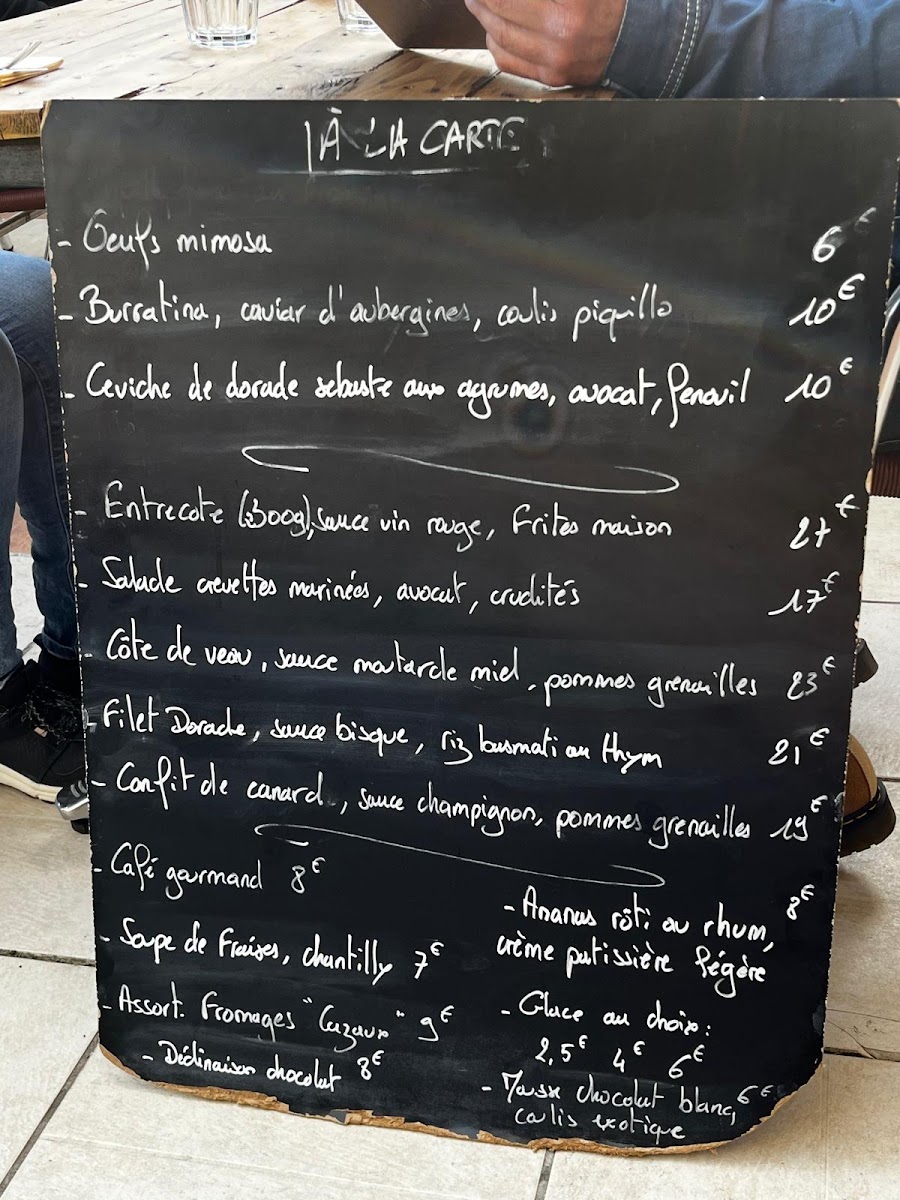 À LA CARTE
- Oeufs mimosa 6€
- Burratina, caviar d'aubergines, coulis piquillo 10€
- Ceviche de dorade sebaste aux agrumes, avocat, fenouil 10€
- Entrecote (300g), sauce vin rouge, Frites maison 27€
- Salade crevettes marinées, avocat, crudités 17€
- Côte de veau, sauce moutarde miel, pommes grenailles 23€
- Filet Dorade, sauce bisque, riz basmati au thym 21€
- Confit de canard, sauce champignon, pommes grenailles 19€
- Café gourmand 8€
- Soupe de Fraises, chantilly 7€
- Assort. Fromages "Cazaux" 9€
- Déclinaison chocolat 8€
- Ananas rôti au rhum, 8€
crème patissière légère
- Glace au choix :
2,5€ 4€ 6€
- Mousse chocolat blanc, 6€
coulis exotique